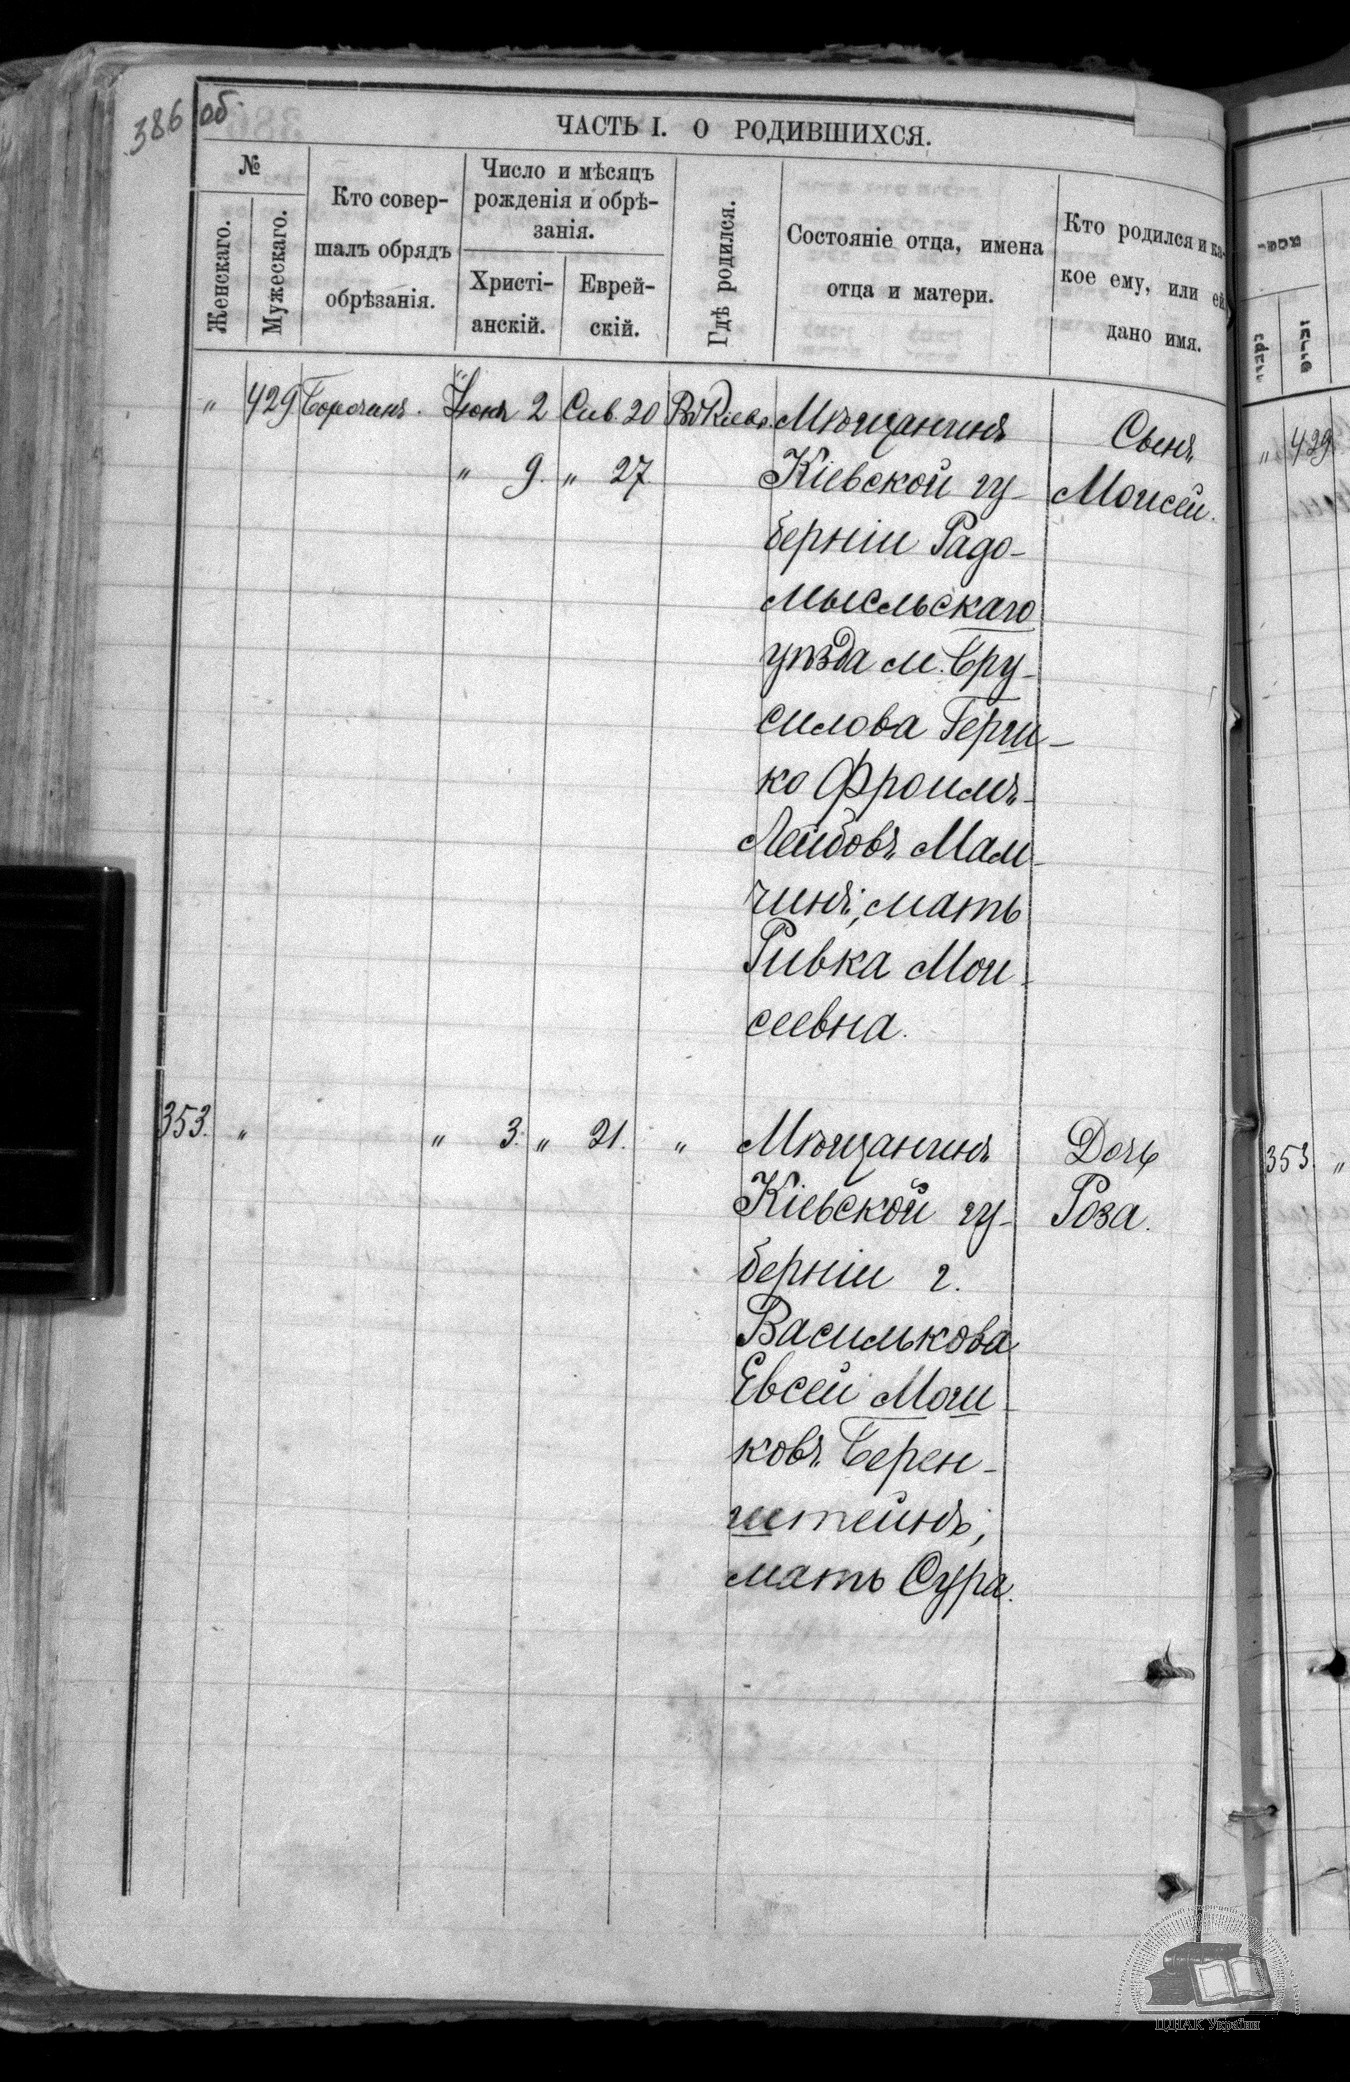 386 об.
ЧАСТЬ I. О РОДИВШИХСЯ.
№
Женскаго.
Мужескаго.
Кто совер-
шалъ обрядъ
обрѣзанія.
Число и мѣсяцъ
рожденія и обрѣ-
занія.
Христі-
анскій.
Еврей-
скій.
Гдѣ родился.
Состояніе отца, имена
отца и матери.
Кто родился и ка-
кое ему, или ей
дано имя.
" 429 Іюня 2 Сив. 20 Въ Кіевѣ. Мѣщанинъ Сынъ
" 9. " 27. Кіевской гу- Моисей.
берніи Радо-
мысльскаго
уѣзда м. Бру-
силова Герш-
ко Фроимъ-
Лейбовъ Мам-
чинъ; мать
Ривка Мои-
сеевна.
353. " " 3. " 21. " Мѣщанинъ Дочь
Кіевской гу- Роза.
берніи г.
Василькова
Евсей Мош-
ковъ Берен-
штейнъ;
мать Сура.
429
353. "
ЦДІАК України